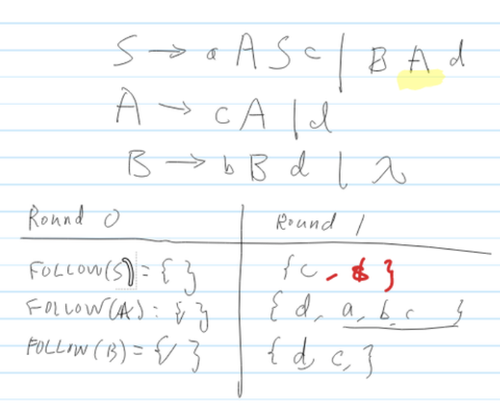 S → a A S c | B A d
A → c A | d
B → b B d | λ
Round 0 Round 1
FOLLOW(S) = { } { c, $ }
FOLLOW(A) : { } { d, a, b, c }
FOLLOW(B) = { } { d, c, }